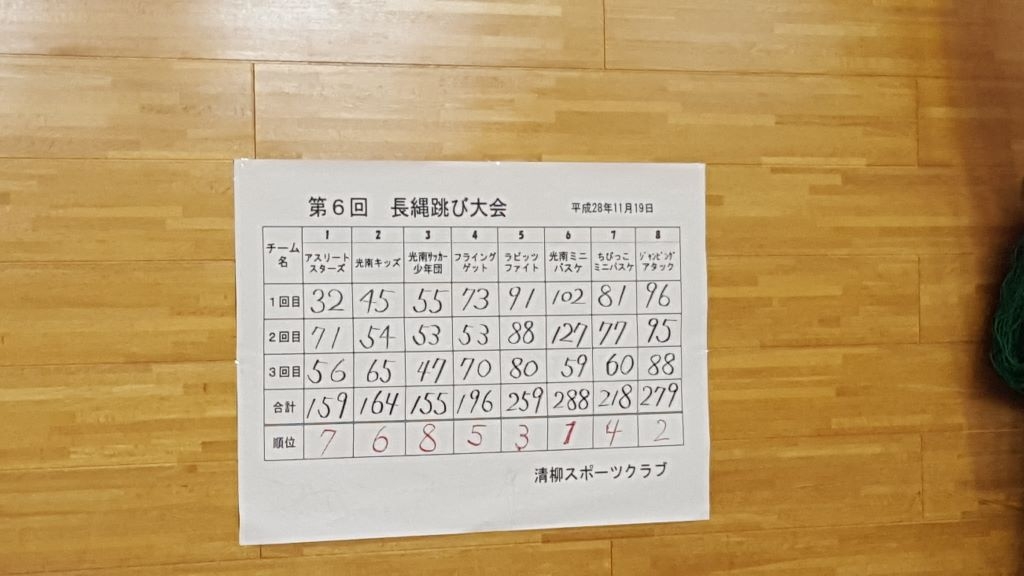 第6回 長縄跳び大会 平成28年11月19日
チーム名 1 アスリートスターズ 2 光南キッズ 3 光南サッカー少年団 4 フライングゲット 5 ラビッツファイト 6 光南ミニバスケ 7 ちびっこミニバスケ 8 ジャンピングアタック
1回目 32 45 55 73 91 102 81 96
2回目 71 54 53 53 88 127 77 95
3回目 56 65 47 70 80 59 60 88
合計 159 164 155 196 259 288 218 279
順位 7 6 8 5 3 1 4 2
清柳スポーツクラブ